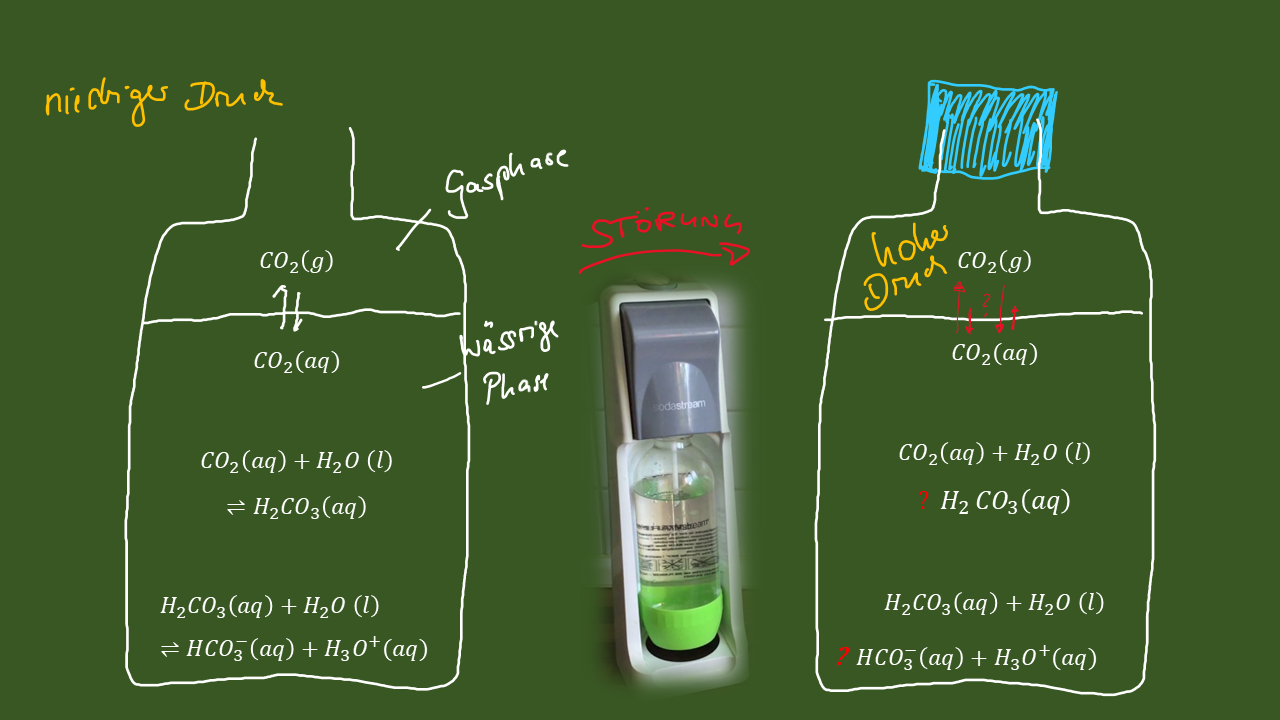 niedriger Druck
Gasphase
CO₂(g)
CO₂(aq)
wässrige
Phase
CO₂(aq) + H₂O (l)
⇌ H₂CO₃(aq)
H₂CO₃(aq) + H₂O (l)
⇌ HCO₃⁻(aq) + H₃O⁺(aq)
STÖRUNG
sodastream
hoher
Druck
CO₂(g)
?
CO₂(aq)
CO₂(aq) + H₂O (l)
? H₂ CO₃(aq)
H₂CO₃(aq) + H₂O (l)
? HCO₃⁻(aq) + H₃O⁺(aq)